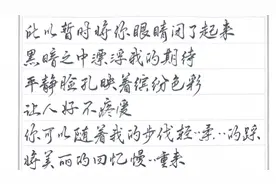 此以暂时将你眼睛闭了起来
黑暗之中漂浮我的期待
平静脸孔映着缤纷色彩
让人好不疼爱
你可以随着我的步伐轻··柔··的踩
将美丽的回忆慢··重来